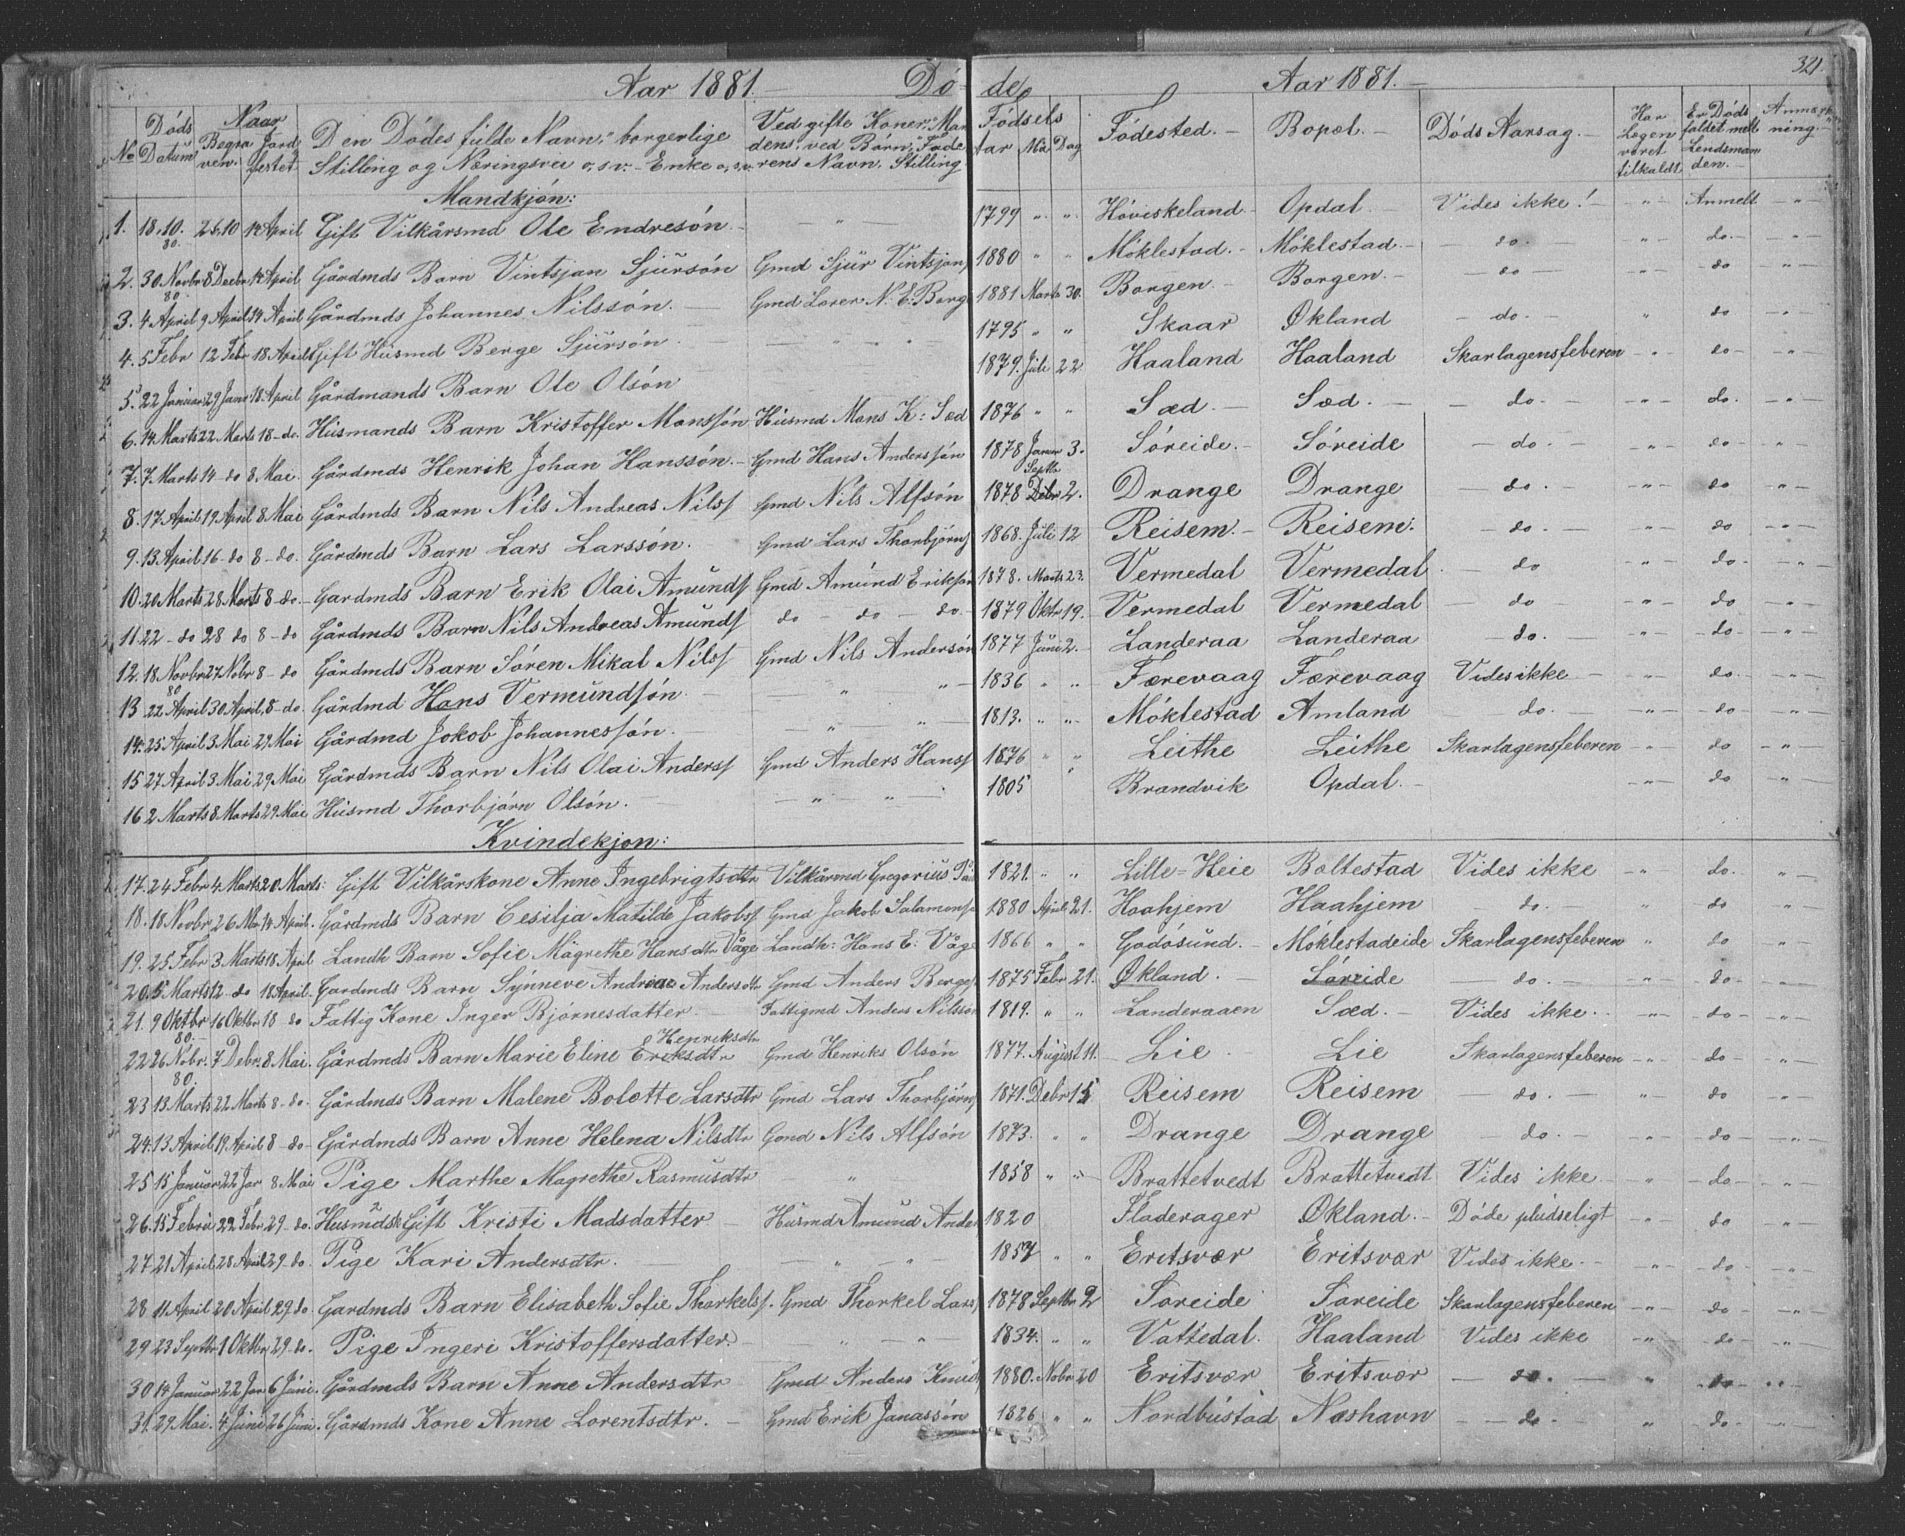 321.
Aar 1881. — Dö - de. Aar 1881. —
No | Döds Datum | Naar Begra ven. | Jord festet | Den Dödes fulde Navn, borgerlige Stilling og Næringsvei o, s, v. - Enke o, s, v. | Ved gifte Koner, Man dens, ved Börn, Fade rens Navn, Stilling | Födsels Aar Md Dag | Födested. — | Bopæl. — | Döds Aarsag. — | Har Lægen været tilkaldt | Er Döds faldet melt Lendsman den. | Anmærk ning. —
Mandkjön:
1. 18/10. 80. 25/10 14 April Gift Vilkårsmd Ole Endresön. — " 1799 " " Höviskeland Opdal Vides ikke! — " — Anmelt — " —
2. 30 Novbr 80. 8 Decbr 14 April Gårdmds Barn Vintsjan Sjürsön Gmd Sjür Vintsjans 1880 " " Möklestad. — Möklestad. — — do. — " — do. — — " —
3. 4 April 9 April 14 April Gårdmds Johannes Nilssön. — Gmd Lorer N. E. Borge 1881 Marts 30. Borgen — Borgen. — — do — " — do — " —
4. 5 Febr 12 Febr 18 April Gift Husmd Berge Sjürsön. 1795 " " Skaar Økland — do. — " do — " —
5. 22 Januar 29 Janr 18. April Gårdmands Barn Ole Olsön 1879. Juli 22 Haaland Haaland Skarlagensfeberen — " — do — — " —
6. 14 Marts 22 Marts 18 - do. Husmands Barn Kristoffer Monssön Husmd Mons K: Sæd 1876 " " Sæd. — Sæd. — — do. — " — do. — " —
7. 7 Marts 14 - do 8 Mai. Gårdmds Henrik Johan Hanssön. — Gmd Hans Anderssön 1878 Janr 3. Söreide. — Söreide — do. — " — do — " —
8. 17 April 19 April 8 Mai Gårdmds Barn Nils Andreas Nilss Gmd Nils Alfsön 1878 Septbr 2. Drange Drange — do. — " — do — " —
9. 13 April 16 - do 8 - do. Gårdmds Barn Lars Larssön. Gmd Lars Thorbjörns 1868. Juli 12 Reisem. — Reisem. — do. — " — do — " —
10. 20 Marts 28 Marts 8 - do — Gardmds Barn Erik Olai Amunds Gmd Amund Eriksön 1878. Marts 23. Vermedal Vermedal — do — " — do — — " —
11. 22 - do 28 do 8 - do Gårdmds Barn Nils Andreas Amunds do — do — do. 1879 Oktr 19. Vermedal Vermedal — do — " — do — " —
12. 18. Novbr 80 27 Nobr 8 - do Gårdmds Barn Sören Mikal Nilss Gmd Nils Andersön 1877 Juni 2. Landeraa Landeraa — do. — " — do — — " —
13 22 April 30 April, 8 - do. Gårdmd Hans Vermundsön. — " " — 1836 " " Færevaag Færevaag Vides ikke — " — do. — " —
14. 25 April 3 Mai 29 Mai Gårdmd Jokob Johannessön. — " " — 1813. " " Möklestad Amland — do. — " — do — " —
15 27 April 3 Mai 29 Mai Gårdmds Barn Nils Olai Anderss Gmd Anders Hanss 1876 " " Leithe Leithe Skarlagensfeberen — " — do — " —
16 2 Marts 8 Marts 29 Mai Husmd Thorbjörn Olsön. — — " — " — 1805 Brandvik Opdal. — — " — do — " —
Kvindekjon:
17. 24 Febr 4 Marts 20 Marts: Gift Vilkårskone Anne Ingebrigtsdtr Vilkårmd Gregorius 1821. " " Lille-Heie Boltestad Vides ikke — " — do. — — " —
18. 18 Novbr 26 No 14 April. Gårdmds Barn Cesilja Matilde Jakobs, Gmd Jakob Salamons 1880 April 21. Haahjem Haahjem — do. — " — do — " —
19. 25 Febr 3 Marts 18 April Landh Barn Sofie Magrethe Hansdtr Våge Landh: Hans E: Våge 1866 " " Godösund. — Möklestadeide Skarlagensfeberen " do — " —
20. 5 Marts 12 - do 18 April. Gardmds Barn Synneve Andreae Andersdtr Gmd Anders Berges 1875 Febr 21. Økland. — Söreide — do. — " — do — — " —
21. 9 Oktbr 80. 16 Oktbr 18 do Fattig Kone Inger Björnesdatter — Fattigmd Anders Nilssön 1819. " " Landeraaen Sæd. — Vides ikke. — " — do — " —
22 26 Nobr. 80. 7 Debr. 8 Mai. Gårdmds Barn Marie Eline Henriksdtr Eriksdtr Gmd Henriks Olsön 1877. August 11. Lie. Lie Skarlagensfeberen — " — do — — " —
23 13 Marts 22 Marts 8 - do. Gårdmds Barn Malene Bolette Larsdtr Gmd Lars Thorbjörns 1871. Debr 15 Reisem Reisem — do. — " — do — " —
24. 13 April 19 April 8 - do — Gårdmds Barn Anne Helena Nilsdtr Gmd Nils Alfsön 1873. " " Drange Drange — do. — " — do — — " —
25 15 Januar 22 Jar 8 Mai Pige Marthe Magrethe Rasmusdtr " 1858 " " Brattetvedt Brattetvedt Vides ikke — " — do — — " —
26. 15 Februar 22 Febr 29 - do. Husmdsk Gift Kristi Madsdatter Husmd Amund Ander 1820 Fladerager Økland. — Döde pludseligt — " — do — " —
27 21 April 28 April 29. do. Pige Kari Andersdtr. — " — " — 1857 " " Eritsvær Eritsvær Vides ikke. — " — do — — " —
28 11 April 20 April 29 do. Gardmds Barn Elisabeth Sofie Thorkels. Gmd Thorkel Lars 1878 Septbr 2 Söreide Söreide Skarlagensfeberen — " — do — — " —
29 23 Septbr 1 Oktbr 29. do. Pige Ingeri Kristoffersdatter. — " — " 1834. " " Vattedal. Haaland Vides ikke " do — — " —
30 14 Januar 22 Jar 6 Juni. Gårdmds Barn Anne Andersdtr Gmd Anders Knud 1880. Nobr 20 Eritsvær Eritsvær — do. — " do — " —
31. 29 Mai. 4 Juni 26 Juni. Gårdmds Kone Anne Lorentsdtr. — Gmd Erik Janassön 1826 " " Nordbustad Næshavn — do — " do — " —